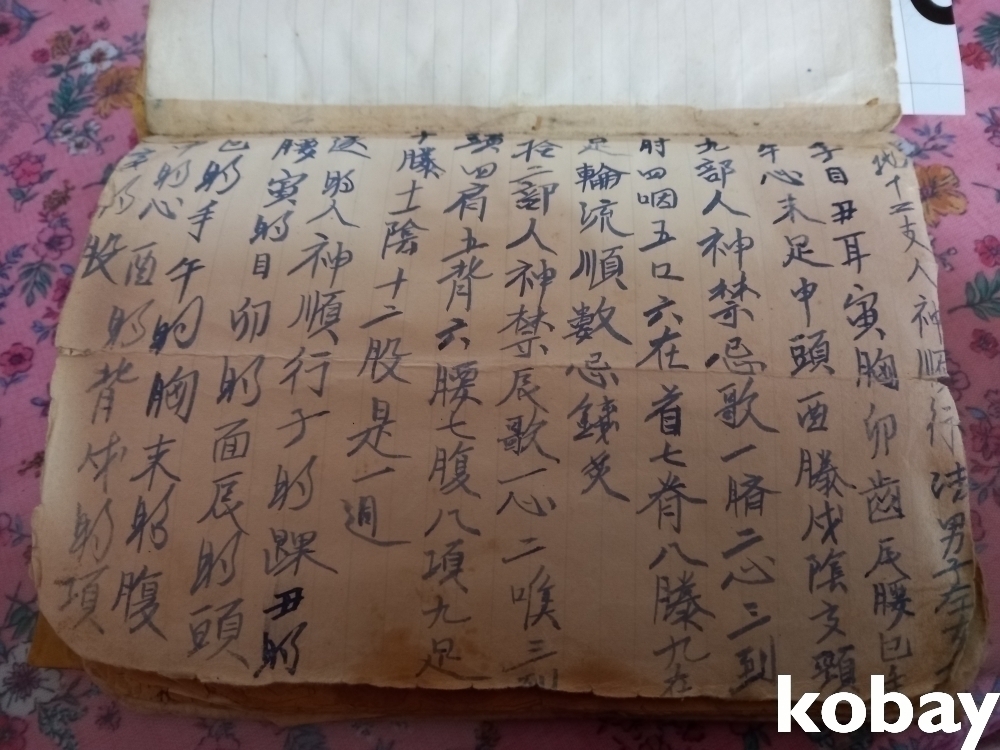 十二支人神順行法男子左
子目丑耳寅胸卯齒辰腰巳手
午心未足申頭酉膝戌陰亥頸
九部人神禁忌歌一臍二心三到
肘四咽五口六在首七脊八膝九在
足輪流順數忌鍼灸
拾二部人神禁忌歌一心二喉三到
頭四肩五背六腰七腹八項九足
十膝十一陰十二股是一週
逐時人神順行子時踝丑時
腰寅時目卯時面辰時頭
巳時手午時胸未時腹
申時心酉時背戌時項
亥時股
kobay